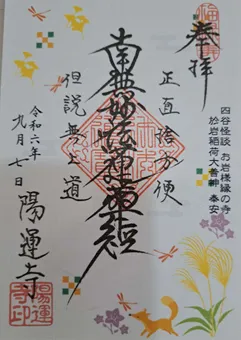 奉拝
四谷怪談 お岩様縁の寺
於岩稲荷大善神 奉安
正直捨方便
南無妙法蓮華経
但説無上道
令和六年
九月七日
陽運寺
陽運
寺印